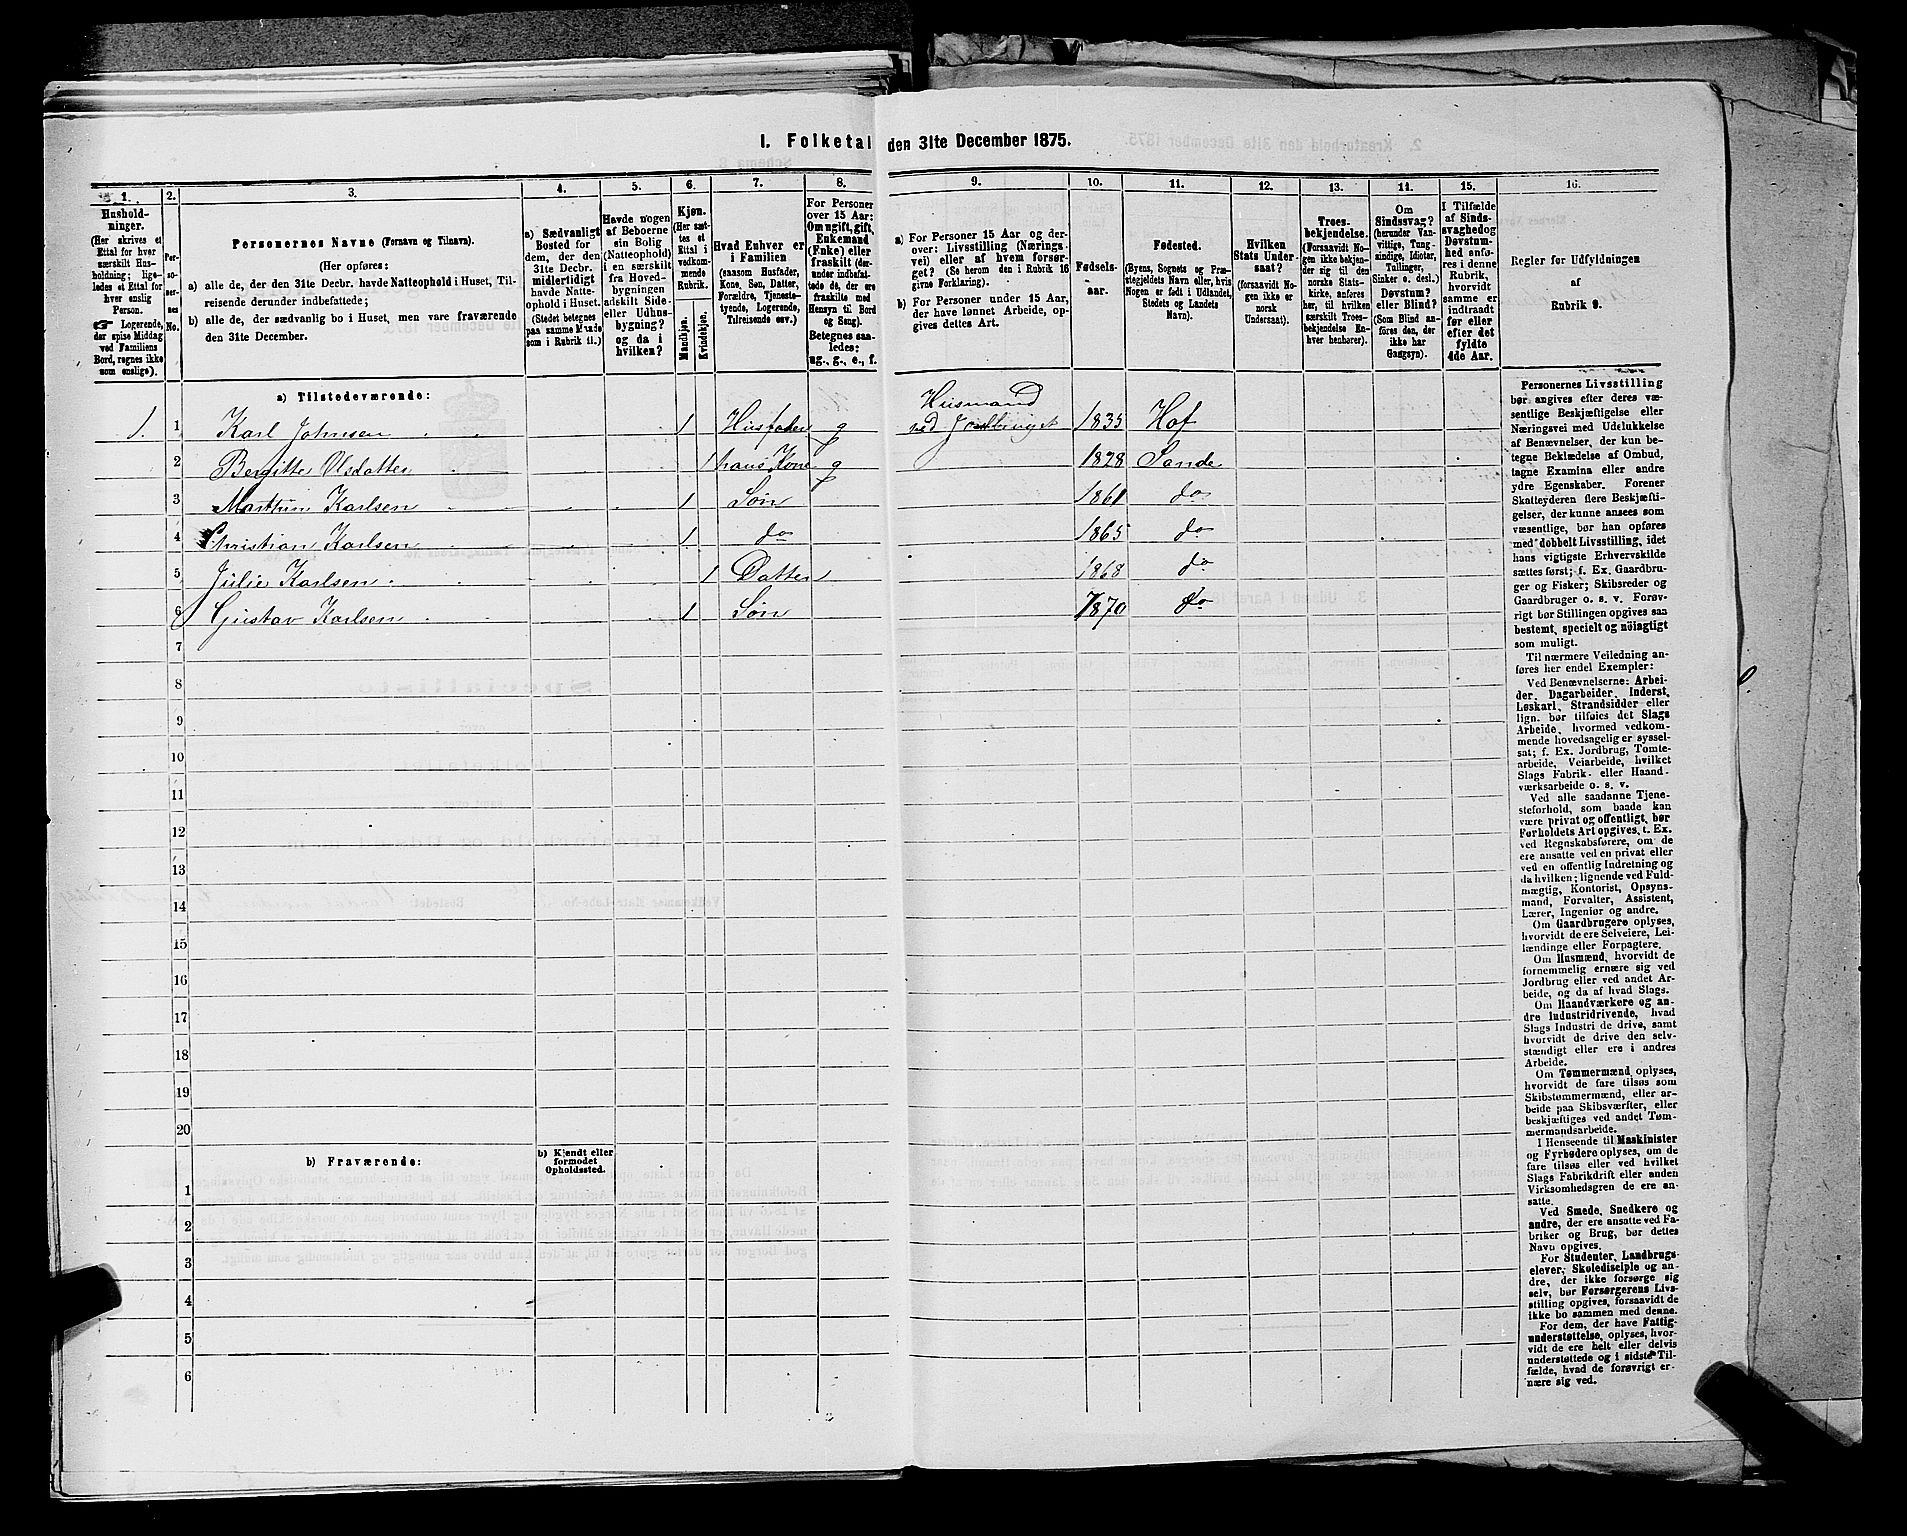 I. Folketal den 31te December 1875.
1.
Hushold-
ninger.
(Her skrives et
Ettal for hver
særskilt Hus-
holdning; lige-
ledes et Ettal for
hver enslig
Person.
☞ Logerende,
der spise Middag
ved Familiens
Bord, regnes ikke
som enslige).
2.
Per-
so-
ner-
nes
No.
3.
Personernes Navne (Fornavn og Tilnavn).
(Her opføres:
a) alle de, der den 31te Decbr. havde Natteophold i Huset, Til-
reisende derunder indbefattede;
b) alle de, der sædvanlig bo i Huset, men vare fraværende
den 31te December.
4.
a) Sædvanligt
Bosted for
dem, der den
31te Decbr.
midlertidigt
havde Natte-
ophold i Huset.
(Stedet betegnes
paa samme Maade
som i Rubrik 11.)
5.
Havde nogen
af Beboerne
sin Bolig
(Natteophold)
i en særskilt
fra Hoved-
bygningen
adskilt Side-
eller Udhus-
bygning?
og da i
hvilken?
6.
Kjøn.
(Her sæt-
tes et
Ettal i
vedkom-
mende
Rubrik.
Mandkjøn.
Kvindekjøn.
7.
Hvad Enhver er
i Familien
(saasom Husfader,
Kone, Søn, Datter,
Forældre, Tjeneste-
tyende, Logerende,
Tilreisende osv.)
8.
For Personer
over 15 Aar:
Om ugift, gift,
Enkemand
(Enke) eller
fraskilt (der-
under indbefat-
tede de, der ere
fraskilte med
Hensyn til Bord
og Seng).
Betegnes saa-
ledes:
ug., g., e., f.
9.
a) For Personer 15 Aar og der-
over: Livsstilling (Nærings-
vei) eller af hvem forsør-
get? (Se herom den i Rubrik 16
givne Forklaring).
b) For Personer under 15 Aar,
der have lønnet Arbeide, op-
gives dettes Art.
10.
Fødsels-
aar.
11.
Fødested.
(Byens, Sognets og Præ-
stegjeldets Navn eller, hvis
Nogen er født i Udlandet,
Stedets og Landets
Navn).
12.
Hvilken
Stats Under-
saat?
(forsaavidt No-
gen ikke er
norsk
Undersaat).
13.
Troes-
bekjendelse.
(Forsaavidt No-
gen ikke bekjen-
der sig til den
norske Stats-
kirke, anføres
her, til hvilken
særskilt Troes-
bekjendelse En-
hver henhører).
14.
Om
Sindssvag?
(herunder Van-
vittige, Tung-
sindige, Idioter,
Tullinger,
Sinker o. desl.)
Døvstum?
eller Blind?
(Som Blind an-
føres den, der
ikke har
Gangsyn).
15.
I Tilfælde
af Sinds-
svaghed og
Døvstum-
hed anfø-
res i denne
Rubrik,
hvorvidt
samme er
indtraadt
før eller
efter det
fyldte
4de Aar.
16.
Regler for Udfyldningen
af
Rubrik 9.
a) Tilstedeværende:
1. 1 Karl Johnsen 1 Husfader g Husmand med Jordbruget 1835 Hof
2 Bergitte Olsdatter 1 hans Kone g 1828 Sande
3 Marthin Karlsen 1 Søn 1861 do
4 Christian Karlsen 1 do 1865 do
5 Julie Karlsen 1 Datter 1868 do
6 Gustav Karlsen 1 Søn 1870 do
7
8
9
10
11
12
13
14
15
16
17
18
19
20
b) Fraværende:
b) Kjendt eller
formodet
Opholdssted.
1
2
3
4
5
6
Personernes Livsstilling
bør angives efter deres væ-
sentlige Beskjæftigelse eller
Næringsvei med Udelukkelse
af Benævnelser, der kun be-
tegne Beklædelse af Ombud,
tagne Examina eller andre
ydre Egenskaber. Forener
Skatteyderen flere Beskjæfti-
gelser, der kunne ansees som
væsentlige, bør han opføres
med dobbelt Livsstilling, idet
hans vigtigste Erhvervskilde
sættes først; f. Ex. Gaardbru-
ger og Fisker; Skibsreder og
Gaardbruger o. s. v. Forøv-
rigt bør Stillingen opgives saa
bestemt, specielt og nöiagtigt
som muligt.
Til nærmere Veiledning an-
føres her endel Exempler:
Ved Benævnelserne: Arbei-
der, Dagarbeider, Inderst,
Løskarl, Strandsidder eller
lign. bør tilføies det Slags
Arbeide, hvormed vedkom-
mende hovedsagelig er syssel-
sat; f. Ex. Jordbrug, Tomte-
arbeide, Veiarbeide, hvilket
Slags Fabrik- eller Haand-
værksarbeide o. s. v.
Ved alle saadanne Tjene-
steforhold, som baade kan
være privat og offentligt, bør
Forholdets Art opgives, t. Ex.
ved Regnskabsførere, om de
ere ansatte ved en privat eller
ved en offentlig Indretning og
da hvilken; lignende ved Fuld-
mægtig, Kontorist, Opsyns-
mand, Forvalter, Assistent,
Lærer, Ingeniør og andre.
Om Gaardbrugere oplyses,
hvorvidt de ere Selveiere, Lei-
lændinge eller Forpagtere.
Om Husmænd, hvorvidt de
fornemmelig ernære sig ved
Jordbrug eller ved andet Ar-
beide, og da af hvad Slags.
Om Haandværkere og an-
dre Industridrivende, hvad
Slags Industri de drive, samt
hvorvidt de drive den selv-
stændigt eller ere i andres
Arbeide.
Om Tømmermænd oplyses,
hvorvidt de fare tilsøs som
Skibstømmermænd, eller ar-
beide paa Skibsværfter, eller
beskjæftiges ved andet Tøm-
mermandsarbeide.
I Henseende til Maskinister
og Fyrbødere oplyses, om de
fare tilsøs eller ved hvilket
Slags Fabrikdrift eller anden
Virksomhedsgren de ere an-
satte.
Ved Smede, Snedkere og
andre, der ere ansatte ved Fa-
briker og Brug, bør dettes
Navn opgives.
For Studenter, Landbrugs-
elever, Skoledisciple og an-
dre, der ikke forsørge sig
selv, bør Forsørgerens Livs-
stilling opgives, forsaavidt de
ikke bo sammen med denne.
For dem, der have Fattig-
understøttelse, oplyses, hvor-
vidt de ere helt eller delvis
understøttede og i sidste Til-
fælde, hvad de forøvrigt er-
nære sig ved.